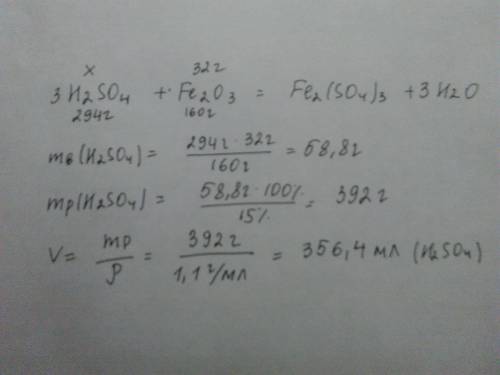 x 32г
3H₂SO₄ + Fe₂O₃ = Fe₂(SO₄)₃ + 3H₂O
294г 160г
mв(H₂SO₄) = 294г · 32г / 160г = 58,8г
mр(H₂SO₄) = 58,8г · 100% / 15% = 392г
V = mр / ρ = 392г / 1,1г/мл = 356,4 мл (H₂SO₄)